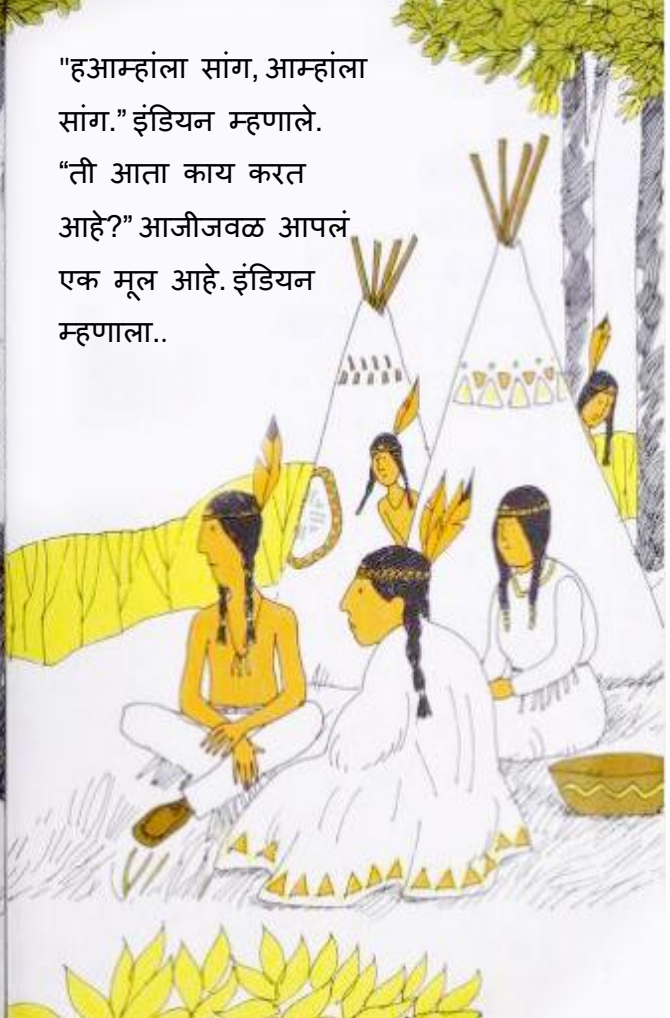 "हआम्हांला सांग, आम्हांला
सांग.” इंडियन म्हणाले.
“ती आता काय करत
आहे?” आजीजवळ आपलं
एक मूल आहे. इंडियन
म्हणाला..